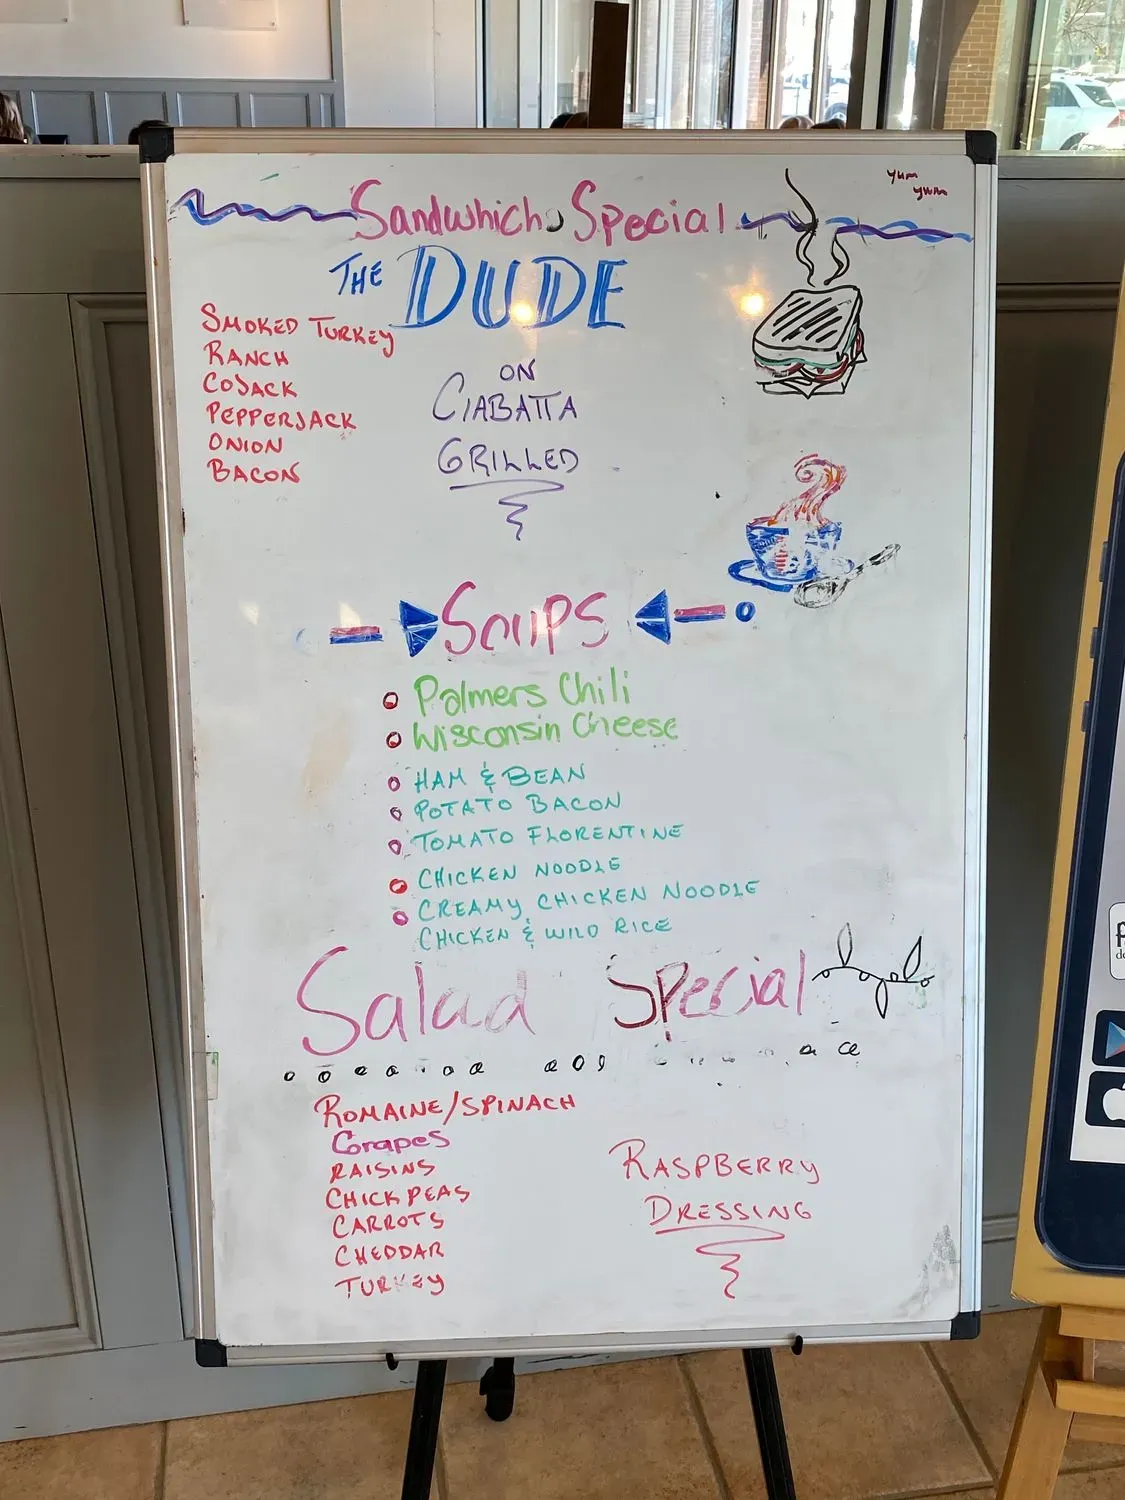 yum
yum
Sandwhich Special
THE DUDE
SMOKED TURKEY
RANCH
COJACK
PEPPERJACK
ONION
BACON
ON
CIABATTA
GRILLED
Soups
Palmers Chili
Wisconsin Cheese
HAM & BEAN
POTATO BACON
TOMATO FLORENTINE
CHICKEN NOODLE
CREAMY CHICKEN NOODLE
CHICKEN & WILD RICE
Salad Special
ROMAINE/SPINACH
Grapes
RAISINS
CHICKPEAS
CARROTS
CHEDDAR
TURKEY
RASPBERRY
DRESSING